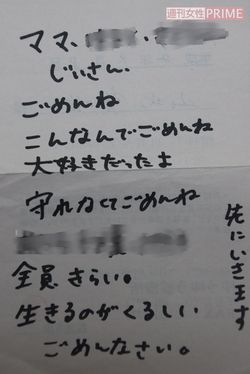 週刊女性PRIME
ママ、
じいさん、
ごめんね
こんなんでごめんね
大好きだったよ
守れなくてごめんね
全員きらい。
生きるのがくるしい
ごめんなさい。
先にいきます